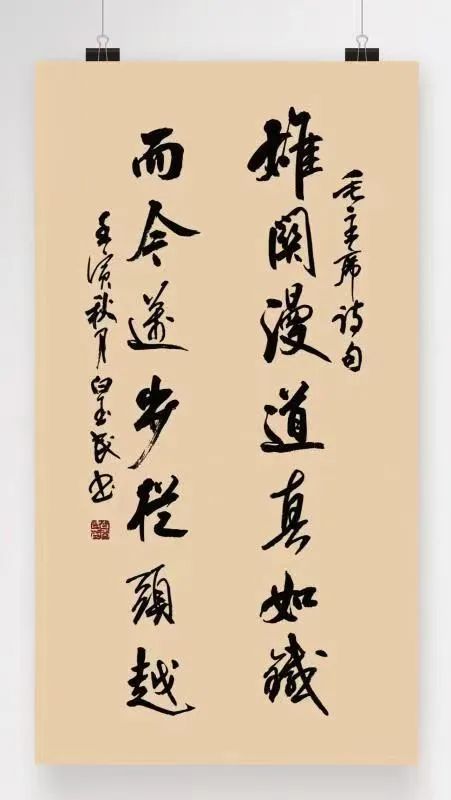 毛主席诗句
雄関漫道真如鐵
而今邁步従頭越
壬寅秋月白玉民书